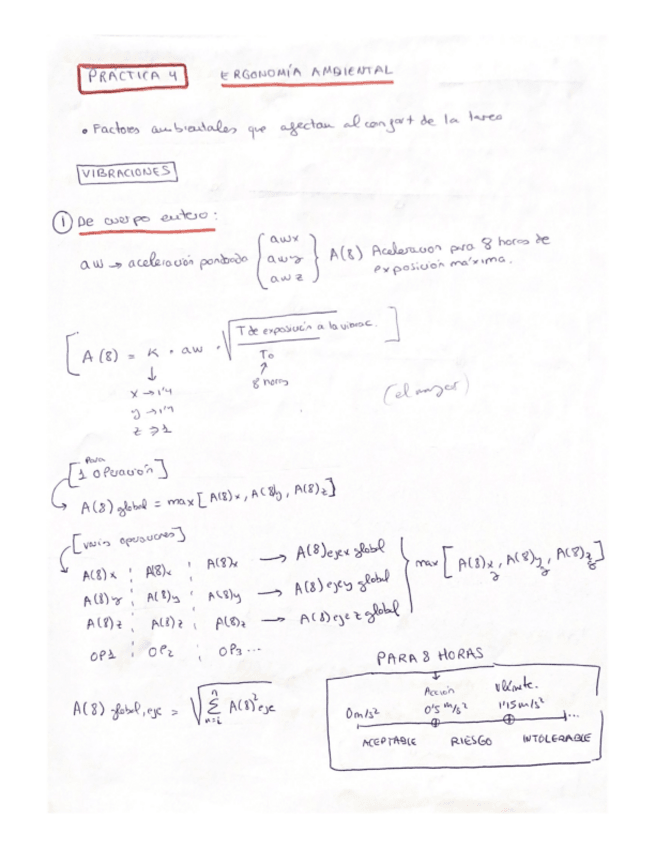 PRÁCTICA 4 ERGONOMÍA AMBIENTAL
• Factores ambientales que afectan al confort de la tarea
VIBRACIONES
① De cuerpo entero:
aw → aceleración ponderada { awx awy awz } A(8) Aceleración para 8 horas de exposición máxima.
[ A(8) = K · aw · √ T de exposición a la vibrac. / To ]
↓ ↑
x → 1'4 8 horas
y → 1'4 (el mayor)
z → 1
[Para 1 operación]
A(8) global = max [A(8)x, A(8)y, A(8)z]
[varias operaciones]
A(8)x ¦ A(8)x ¦ A(8)x → A(8) eje x global
A(8)y ¦ A(8)y ¦ A(8)y → A(8) eje y global } max [A(8)x g, A(8)y g, A(8)z g]
A(8)z ¦ A(8)z ¦ A(8)z → A(8) eje z global
OP1 ¦ OP2 ¦ OP3 ...
PARA 8 HORAS
A(8) global, eje = √ n Σ n=i A(8)² eje
Acción
0 m/s² 0'5 m/s² 1'15 m/s² ...
ACEPTABLE RIESGO INTOLERABLE